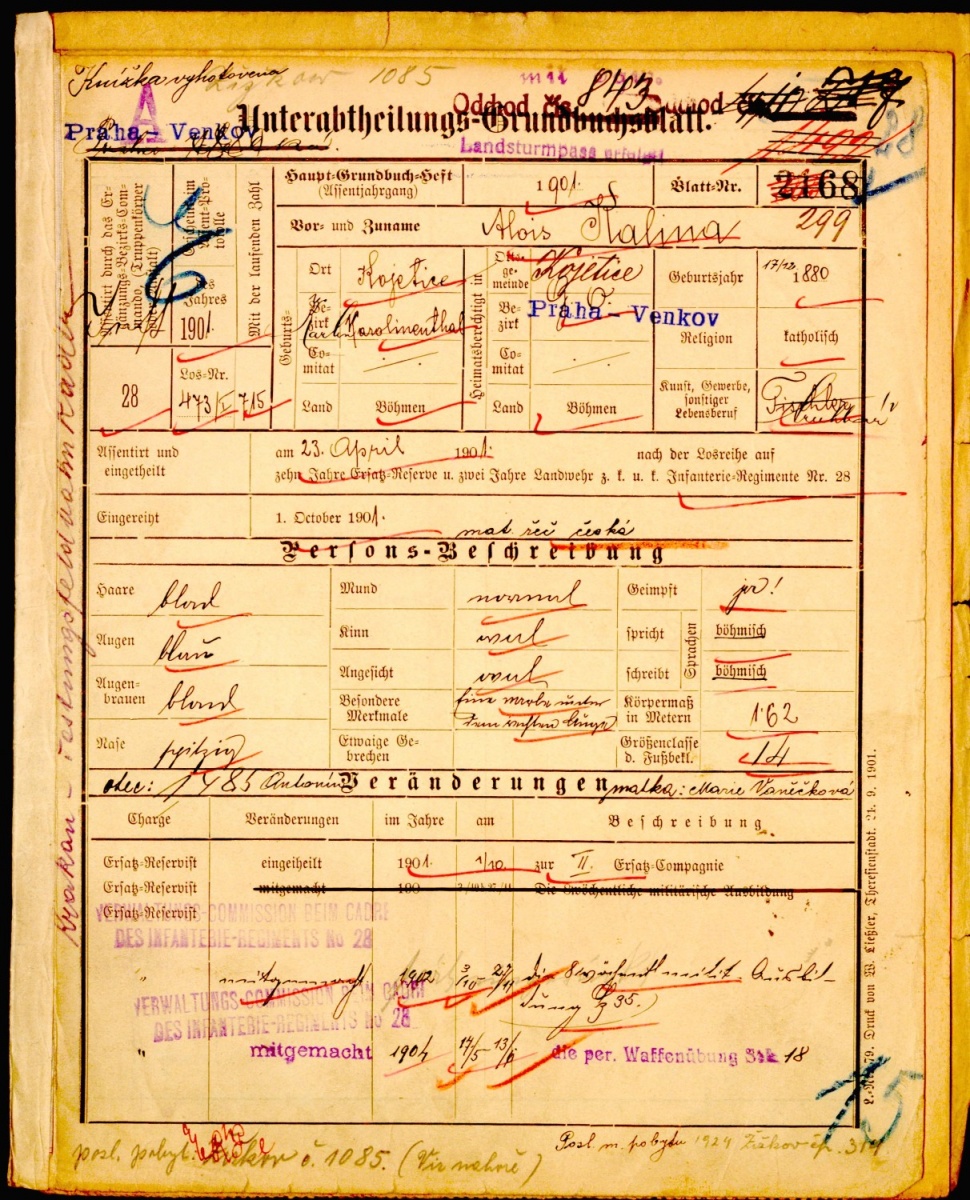 Knížka vyhotovena
1085
A
Odchod čís. 843
Praha – Venkov
Unterabtheilungs-Grundbuchsblatt.
Landsturmpass erfolgt
28
Haupt-Grundbuch-Heft
(Assentjahrgang)
1901.
Blatt-Nr.
2168
299
Vor- und Zuname
Alois Kalina
Assentirt durch das Ergänzungs-Bezirks-Commando, (Truppenkörper
Erscheint im Assent-Protokolle
des Jahres
1901.
Mit der laufenden Zahl
28
Los-Nr.
473/I
715
Geburts-
Ort
Kojetice
Bezirk
Karolinenthal
Comitat
Land
Böhmen
Heimatsberechtigt in
Ortsgemeinde
Kojetice
Bezirk
Praha – Venkov
Comitat
Land
Böhmen
Geburtsjahr
17/12 1880
Religion
katholisch
Kunst, Gewerbe,
sonstiger
Lebensberuf
Tischler
Assentirt und
eingetheilt
am 23. April 1901. nach der Losreihe auf
zehn Jahre Ersatz-Reserve u. zwei Jahre Landwehr z. k. u. k. Infanterie-Regimente Nr. 28
Eingereiht
1. October 1901.
mat. řeč česká
Persons-Beschreibung
Haare
blond
Mund
normal
Geimpft
ja!
Augen
blau
Kinn
oval
Sprachen
spricht
böhmisch
Angesicht
oval
schreibt
böhmisch
Augenbrauen
blond
Besondere
Merkmale
Eine Narbe unter
dem rechten Auge
Körpermaß
in Metern
1·62
Nase
spitzig
Etwaige Gebrechen
Größenclasse
d. Fußbekl.
14
otec: Antonín
Veränderungen
matka: Marie Vaněčková
Charge
Veränderungen
im Jahre
am
Beschreibung
Ersatz-Reservist
eingetheilt
1901.
1/10.
zur II. Ersatz-Compagnie
Ersatz-Reservist
mitgemacht
190
Die 8wöchentliche militärische Ausbildung
Ersatz-Reservist
VERWALTUNGS-COMMISSION BEIM CADRE
DES INFANTERIE-REGIMENTS No 28
"
mitgemacht
1902
3/10 27/11
die 8wöchentl. milit. Ausbil-
dung (§ 35.)
VERWALTUNGS-COMMISSION BEIM CADRE
DES INFANTERIE-REGIMENTS No 28
"
mitgemacht
1904
17/5–13/6
die per. Waffenübung 18
15
posl. pobyt. Žižkov č. 1085. (Viz nahoře)
Posl. m. pobytu 1924 Žižkov čp.
Krakau – Festungsfeldbahn Kader
L.-Nr. 79. Druck von W. Ließler, Theresienstadt. 21. 9. 1901.